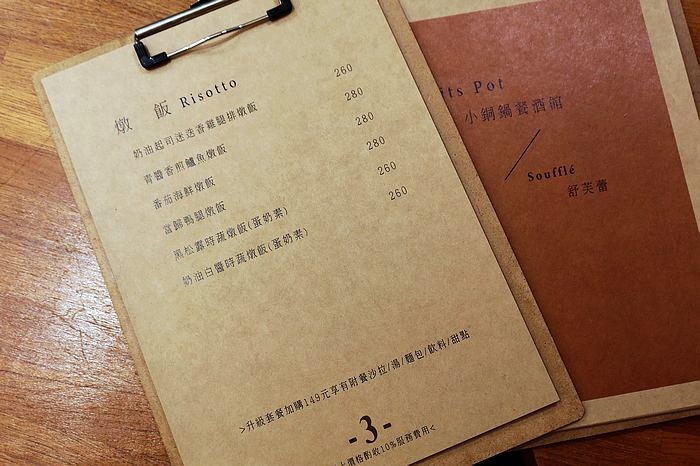 燉 飯 Risotto
奶油起司迷迭香雞腿排燉飯 260
青醬香煎鱸魚燉飯 280
番茄海鮮燉飯 280
當歸鴨腿燉飯 280
黑松露時蔬燉飯(蛋奶素) 260
奶油白醬時蔬燉飯(蛋奶素) 260
>升級套餐加購149元享有附餐沙拉/湯/麵包/飲料/甜點
-3-
價格酌收10%服務費用<
its Pot
小銅鍋餐酒館
Soufflé
舒芙蕾